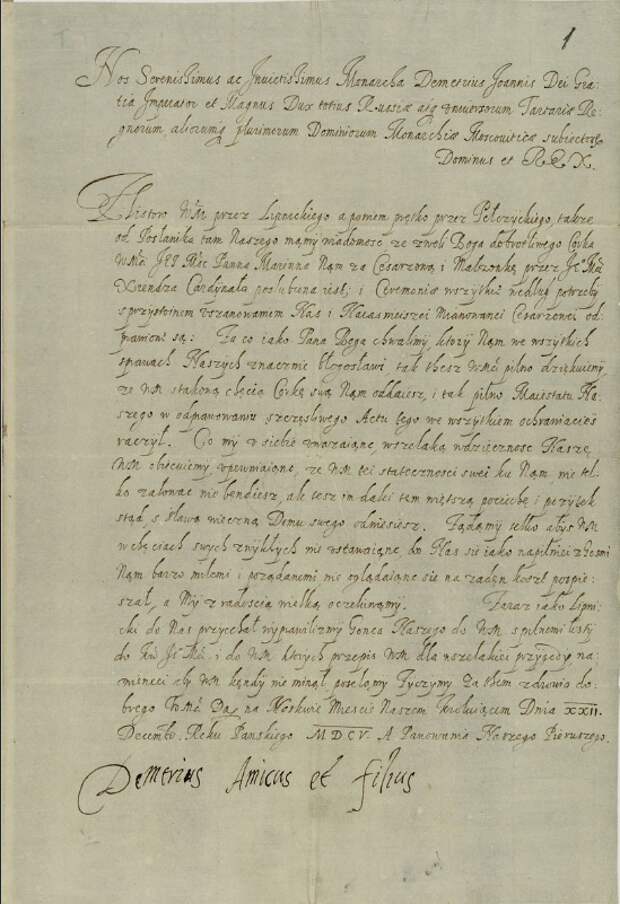 1
Nos Serenissimus ac Invictissimus Monarcha Demetrius Joannis Dei Gra-
tia Imperator et Magnus Dux totius Russiæ atq universorum Tartariæ Re-
gnorum aliorumq plurimorum Dominiorum Monarchiæ Moscoviticæ subiectorū
Dominus et REX.
Z Listow WM przez Lipnickiego a potem prętko przez Pełczyckiego, także
od Posłanika tam Naszego mamy wiadomosc ze zwoli Boga dobrotliwego Corka
WMci Panna Marinna Nam za Cesarzową i Małzonkę przez
Xiendza Cardynała poslubiona iest, i Ceremoniæ wszytkie według potrzeby
sprzystoinem uszanowaniem Nas i Mianowanei Cesarzowei od-
prawione są: Za co iako Pana Boga chwalimy, ktory Nam we wszytkich
sprawach Naszych znacznie błogosławi tak thesz WMci pilno dziękuiemy,
ze WM stakową chęcią Corkę swą Nam oddaiesz, i tak pilno Maiestatu Na-
szego w odprawowaniu szczęsliwego Actu tego we wszytkiem ochraniac
raczył. Co my u siebie uwazaiąc, wszelaką wdzięcznosc Naszę
WM obiecuiemy, upewniaiąc, ze WM tei statecznosci swei ku Nam, nie tel-
ko załowac nie bendziesz, ale tesz im dalei tem więtszą pociechę i pozytek
stąd, s sławą wieczną Domu swego odniesiesz. Ządamy telko abys WM
w chęciach swych zwykłych nie ustawaiąc, do Nas sie iako napilniei z
Nam barzo miłemi i porządanemi nie oglądaiąc sie na zaden koszt pospie-
szał, a My z radoscią wielką oczekiwamy. Zaraz iako Lipni-
cki do Nas przyechał wyprawilizmy Gonca Naszego do WM s pilnemi listy
do i do WM ktorych przepis WM dla wszelakiei przygody na-
mieneci aby WM kędy nie minął, posełamy Zyczymy za tem zdrowia do-
brego WMci Dan na Moskwie Miescie Naszem Krolwiącem Dnia XXII.
Decemb. Roku Panskiego MDCV. A Panowania Naszego Pierwszego.
Demetrius Amicus et filius